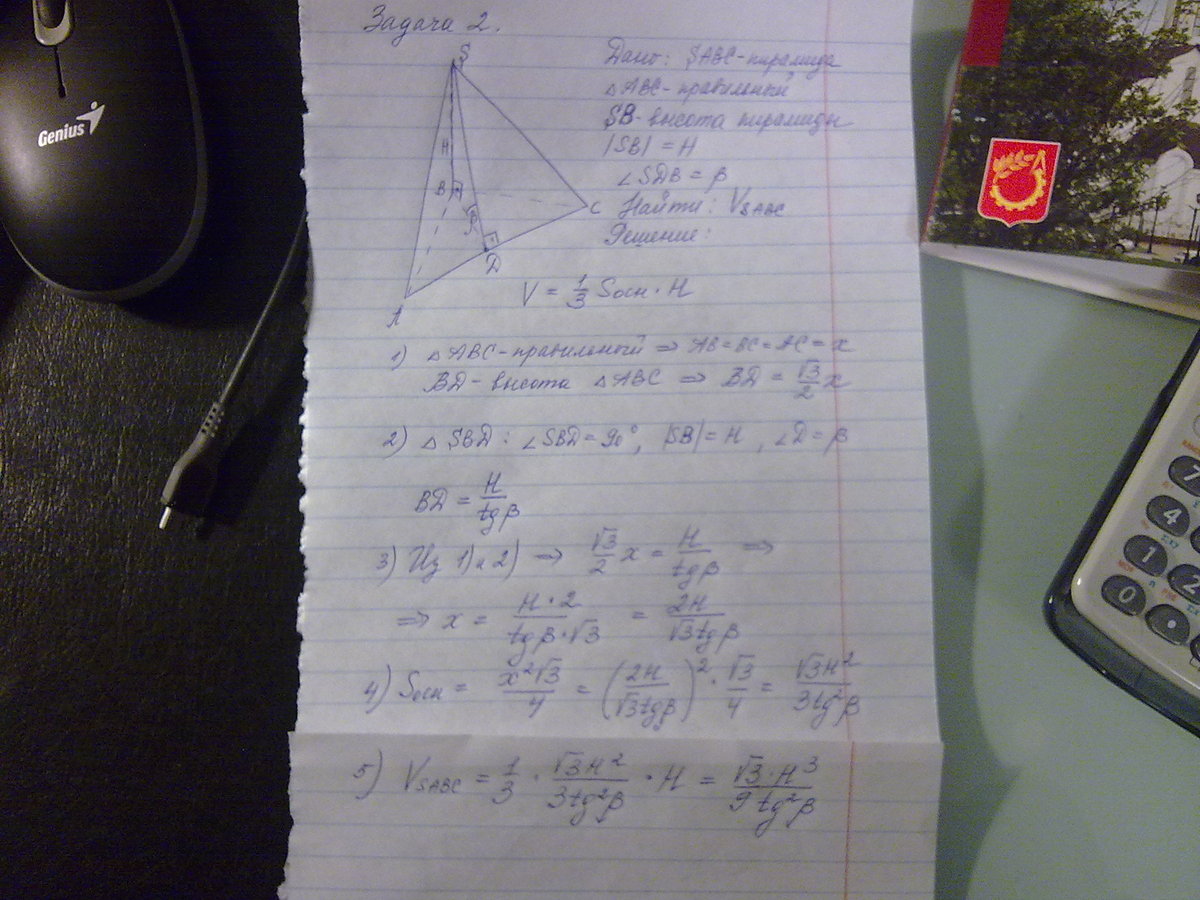 Задача 2.
Дано: SABC-пирамида
△ABC-правильный
SB-высота пирамиды
|SB| = H
∠SDB = β
Найти: V_SABC
Решение:
S
H
B
C
β
D
A
V = 1/3 Sосн · H
1) △ABC-правильный ⇒ AB=BC=AC=x
BD-высота △ABC ⇒ BD = √3/2 x
2) △SBD: ∠SBD=90°, |SB|=H, ∠D=β
BD = H/tgβ
3) Из 1) и 2) ⇒ √3/2 x = H/tgβ ⇒
⇒ x = H·2/tgβ·√3 = 2H/√3tgβ
4) Sосн = x²√3/4 = (2H/√3tgβ)² · √3/4 = √3H²/3tg²β
5) V_SABC = 1/3 · √3H²/3tg²β · H = √3·H³/9tg²β
Genius
7
4
1
2
0